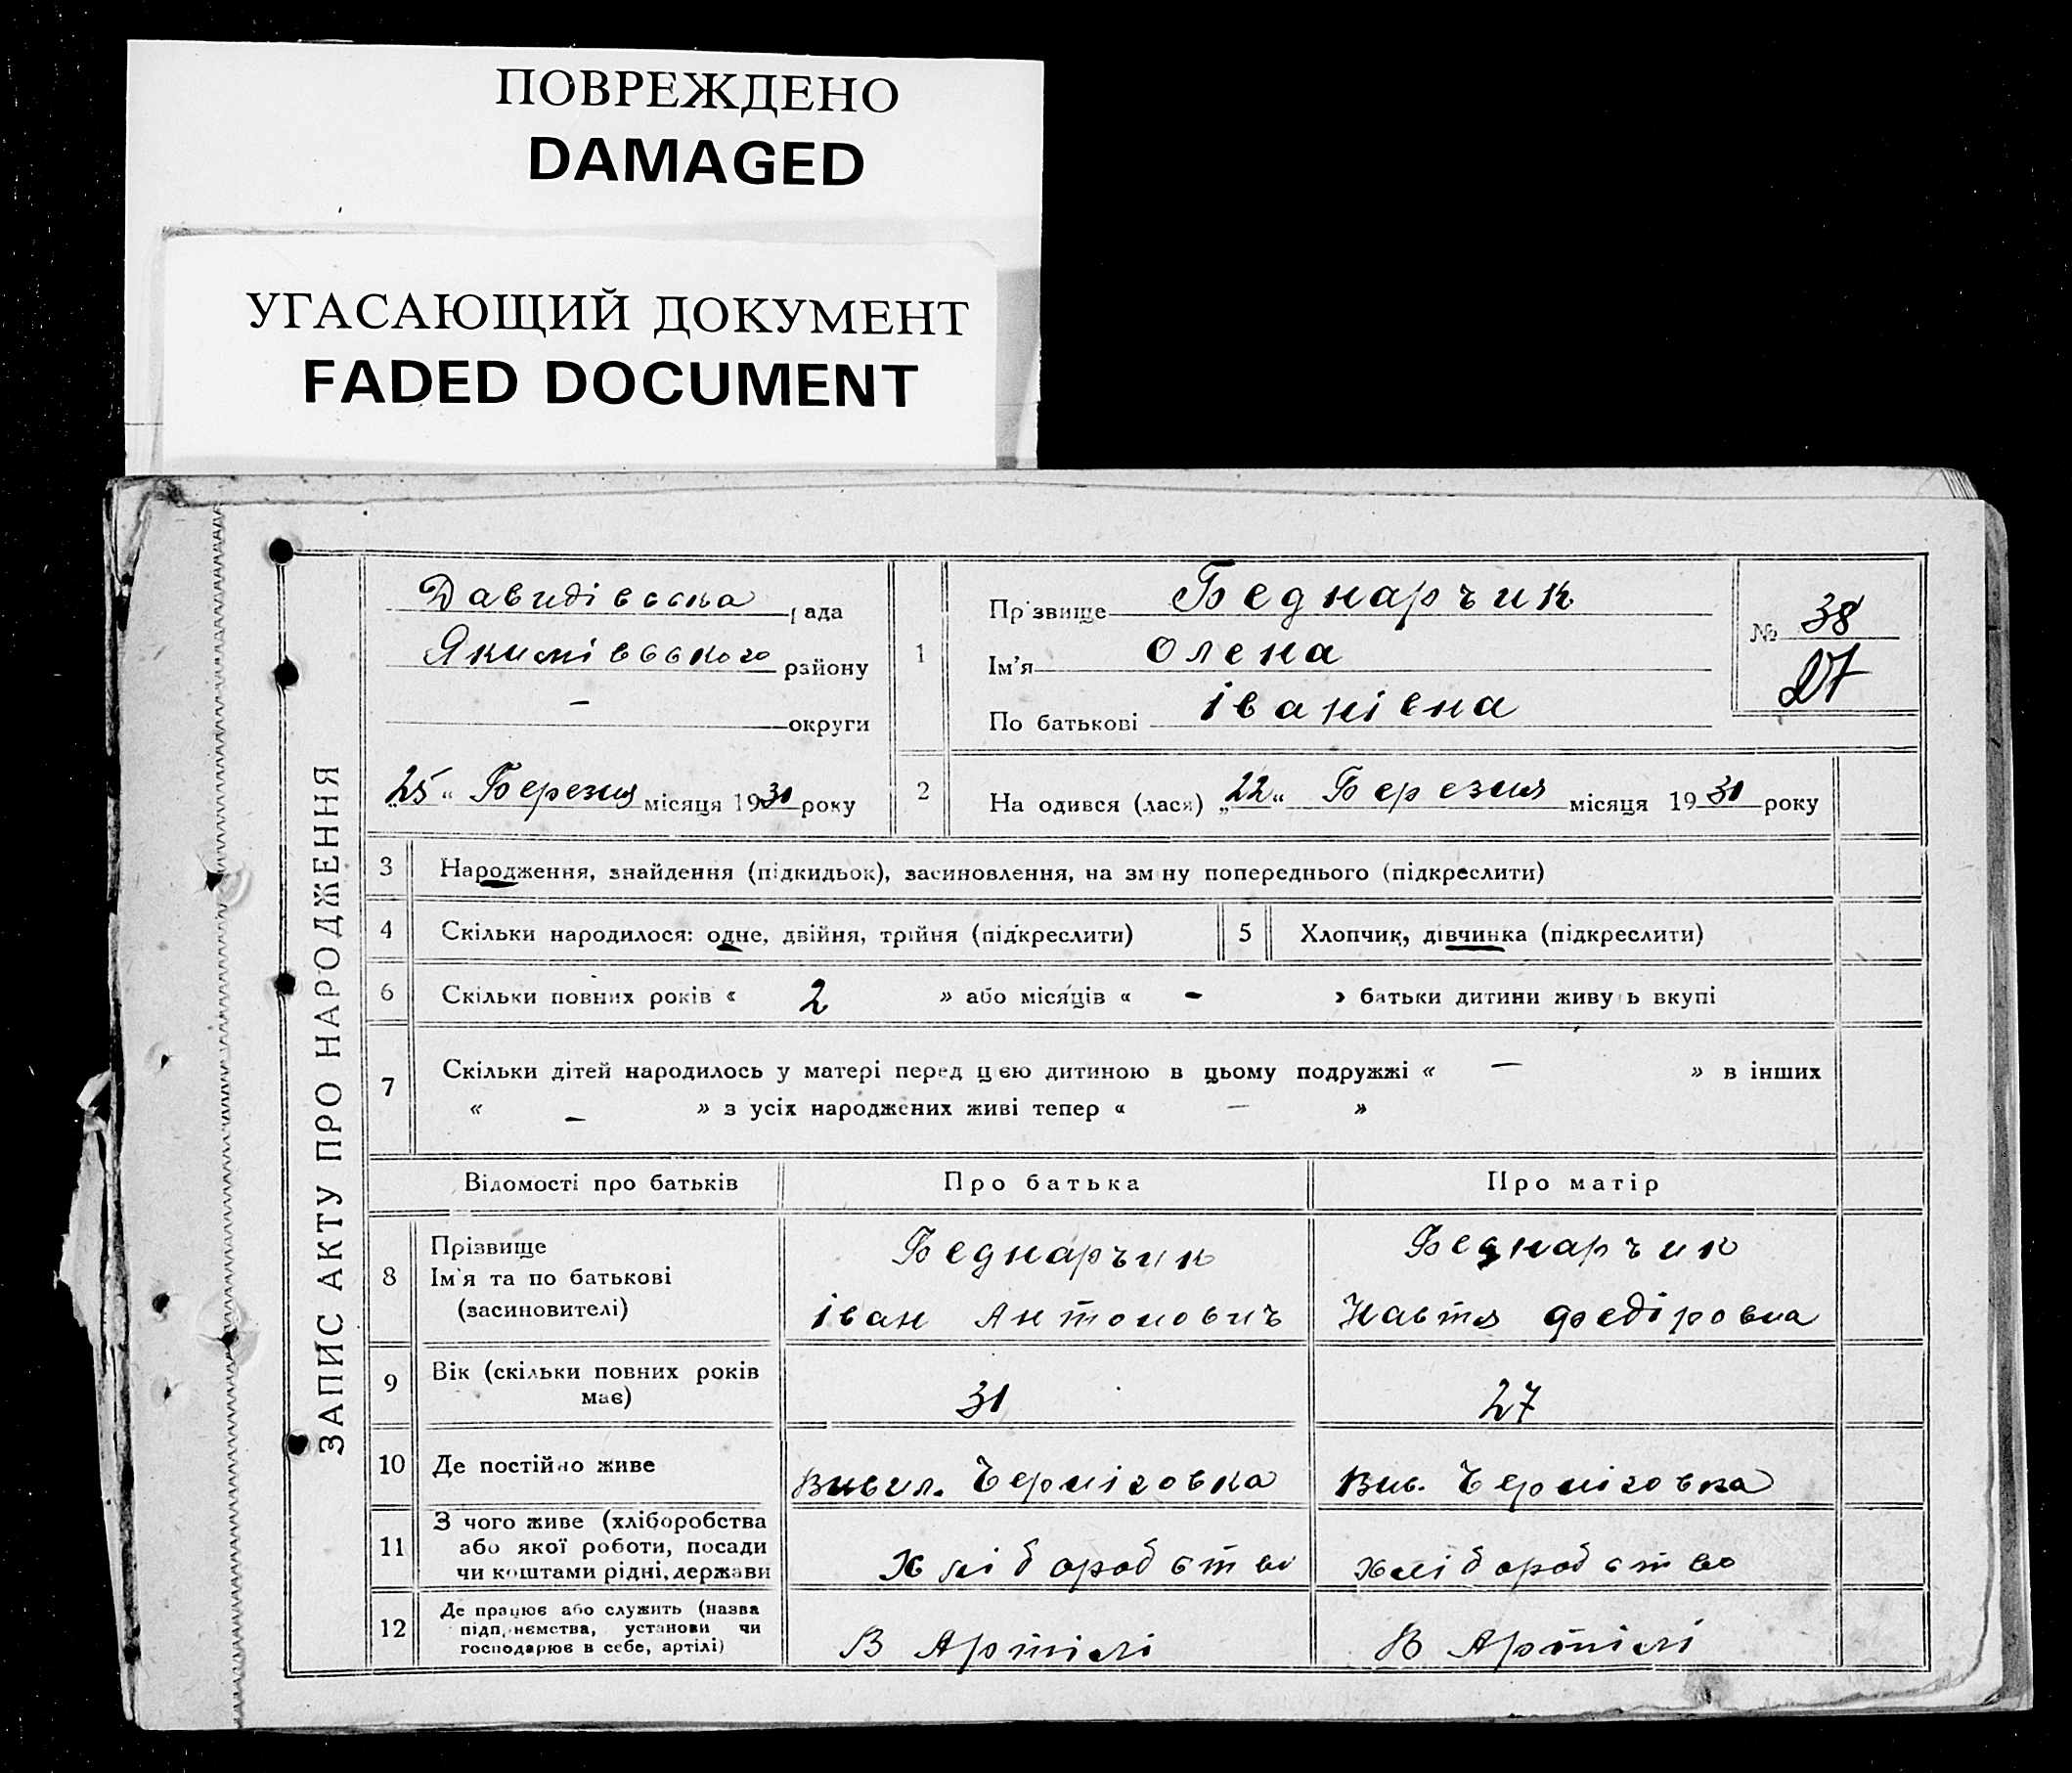 ПОВРЕЖДЕНО
DAMAGED
УГАСАЮЩИЙ ДОКУМЕНТ
FADED DOCUMENT
ЗАПИС АКТУ ПРО НАРОДЖЕННЯ
Давидівська рада
Якимівського району
— округи
25 " Березня місяця 1931 року
1
Прізвище Беднарчик
Ім'я Олена
По батькові Іванівна
№ 38
27
2
На одився (лася) „22" Березня місяця 1931 року
3 Народження, знайдення (підкидьок), засиновлення, на зміну попереднього (підкреслити)
4 Скільки народилося: одне, двійня, трійня (підкреслити)
5 Хлопчик, дівчинка (підкреслити)
6 Скільки повних років « 2 » або місяців « - » батьки дитини живуть вкупі
7 Скільки дітей народилось у матері перед цією дитиною в цьому подружжі « — » в інших
« – » з усіх народжених живі тепер « — »
Відомості про батьків
Про батька
Про матір
8 Прізвище
Ім'я та по батькові
(засиновителі)
Беднарчик
Іван Антонович
Беднарчик
Настя Федіровна
9 Вік (скільки повних років
має)
31
27
10 Де постійно живе
Черніговка
Черніговка
11 З чого живе (хліборобства
або якої роботи, посади
чи коштами рідні, держави
Хліборобство
Хліборобство
12 Де працює або служить (назва
підприємства, установи чи
господарює в себе, артілі)
В Артілі
В Артілі